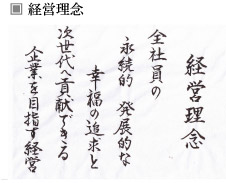 経営理念
経営理念
全社員の
永続的 発展的な
幸福の追求と
次世代へ貢献できる
企業を目指す経営